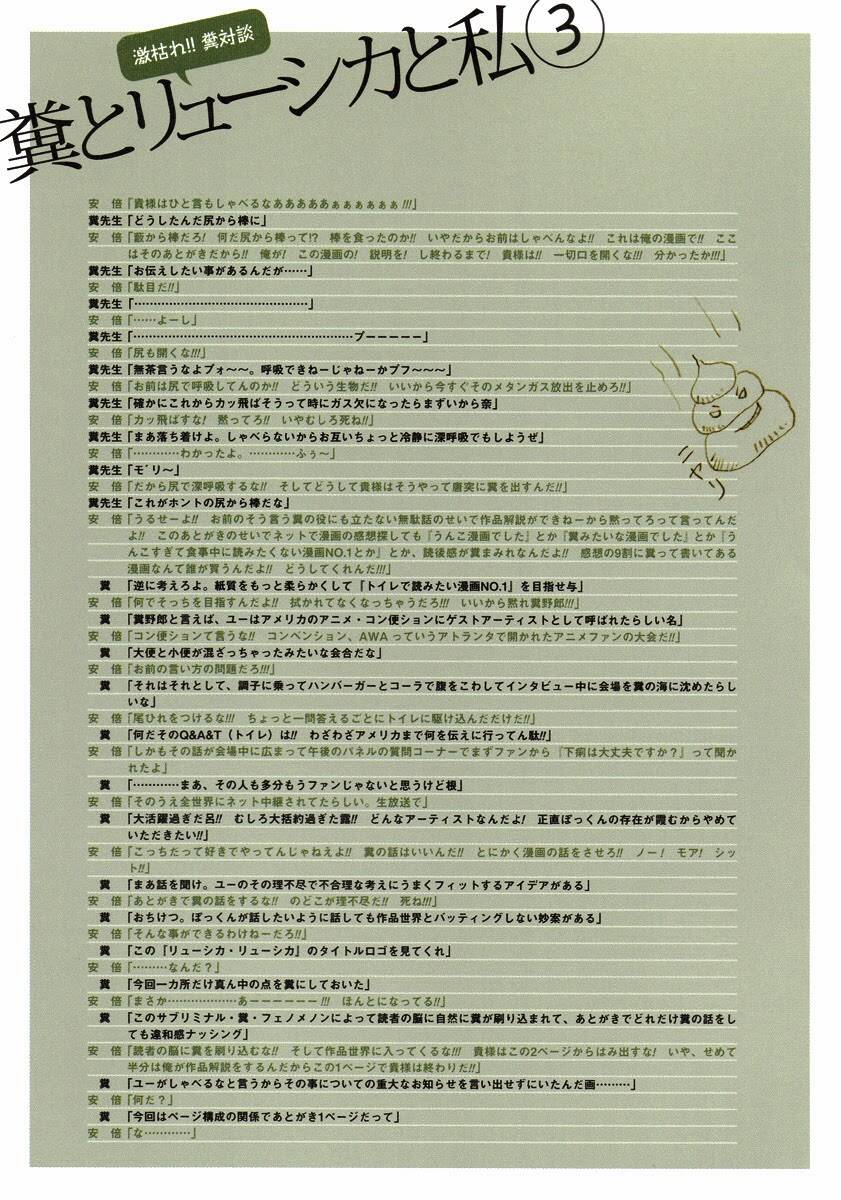 激枯れ!! 糞対談
糞とリューシカと私③
安　倍「貴様はひと言もしゃべるなあああああぁぁぁぁぁぁ!!!」
糞先生「どうしたんだ尻から棒に」
安　倍「藪から棒だろ!　何だ尻から棒って!?　棒を食ったのか!!　いやだからお前はしゃべんなよ!!　これは俺の漫画で!!　ここ
はそのあとがきだから!!　俺が!　この漫画の!　説明を!　し終わるまで!　貴様は!!　一切口を開くな!!!　分かったか!!!」
糞先生「お伝えしたい事があるんだが……」
安　倍「駄目だ!!」
糞先生「………………………………………」
安　倍「……よーし」
糞先生「………………………………………………ブーーーーー」
安　倍「尻も開くな!!!」
糞先生「無茶言うなよブォ～～。呼吸できねーじゃねーかブフ～～～」
安　倍「お前は尻で呼吸してんのか!!　どういう生物だ!!　いいから今すぐそのメタンガス放出を止めろ!!」
糞先生「確かにこれからカッ飛ばそうって時にガス欠になったらまずいから奈」
安　倍「カッ飛ばすな!　黙ってろ!　いやむしろ死ね!!」
糞先生「まあ落ち着けよ。しゃべらないからお互いちょっと冷静に深呼吸でもしようぜ」
安　倍「…………わかったよ。…………ふぅ～」
糞先生「モ゛リ～」
安　倍「だから尻で深呼吸するな!!　そしてどうして貴様はそうやって唐突に糞を出すんだ!!」
糞先生「これがホントの尻から棒だな」
安　倍「うるせーよ!!　お前のそう言う糞の役にも立たない無駄話のせいで作品解説ができねーから黙ってろって言ってんだ
よ!!　このあとがきのせいでネットで漫画の感想探しても『うんこ漫画でした』とか『糞みたいな漫画でした』とか『う
んこすぎて食事中に読みたくない漫画NO.1とか』とか、読後感が糞まみれなんだよ!!　感想の9割に糞って書いてある
漫画なんて誰が買うんだよ!!　どうしてくれんだ!!!」
糞　「逆に考えろよ。紙質をもっと柔らかくして『トイレで読みたい漫画NO.1』を目指せ与」
安　倍「何でそっちを目指すんだよ!!　拭かれてなくなっちゃうだろ!!!　いいから黙れ糞野郎!!!」
糞　「糞野郎と言えば、ユーはアメリカのアニメ・コン便ションにゲストアーティストとして呼ばれたらしい名」
安　倍「コン便ションて言うな!!　コンベンション、AWAっていうアトランタで開かれたアニメファンの大会だ!!」
糞　「大便と小便が混ざっちゃったみたいな会合だな」
安　倍「お前の言い方の問題だろ!!!」
糞　「それはそれとして、調子に乗ってハンバーガーとコーラで腹をこわしてインタビュー中に会場を糞の海に沈めたらし
いな」
安　倍「尾ひれをつけるな!!!　ちょっと一問答えるごとにトイレに駆け込んだだけだ!!」
糞　「何だそのQ&A&T（トイレ）は!!　わざわざアメリカまで何を伝えに行ってん駄!!」
安　倍「しかもその話が会場中に広まって午後のパネルの質問コーナーでまずファンから『下痢は大丈夫ですか？』って聞か
れたよ」
糞　「…………まあ、その人も多分もうファンじゃないと思うけど根」
安　倍「そのうえ全世界にネット中継されてたらしい。生放送で」
糞　「大活躍過ぎだ呂!!　むしろ大括約過ぎた露!!　どんなアーティストなんだよ!　正直ぼっくんの存在が霞むからやめて
いただきたい!!」
安　倍「こっちだって好きでやってんじゃねえよ!!　糞の話はいいんだ!!　とにかく漫画の話をさせろ!!　ノー!　モア!　シッ
ト!!」
糞　「まあ話を聞け。ユーのその理不尽で不合理な考えにうまくフィットするアイデアがある」
安　倍「あとがきで糞の話をするな!!　のどこが理不尽だ!!　死ね!!!」
糞　「おちけつ。ぼっくんが話したいように話しても作品世界とバッティングしない妙案がある」
安　倍「そんな事ができるわけねーだろ!!」
糞　「この『リューシカ・リューシカ』のタイトルロゴを見てくれ」
安　倍「………なんだ？」
糞　「今回一カ所だけ真ん中の点を糞にしておいた」
安　倍「まさか………………あーーーーーー!!!　ほんとになってる!!」
糞　「このサブリミナル・糞・フェノメノンによって読者の脳に自然に糞が刷り込まれて、あとがきでどれだけ糞の話をし
ても違和感ナッシング」
安　倍「読者の脳に糞を刷り込むな!!　そして作品世界に入ってくるな!!!　貴様はこの2ページからはみ出すな!　いや、せめて
半分は俺が作品解説をするんだからこの1ページで貴様は終わりだ!!」
糞　「ユーがしゃべるなと言うからその事についての重大なお知らせを言い出せずにいたんだ画………」
安　倍「何だ？」
糞　「今回はページ構成の関係であとがき1ページだって」
安　倍「な…………」
ニヤリ